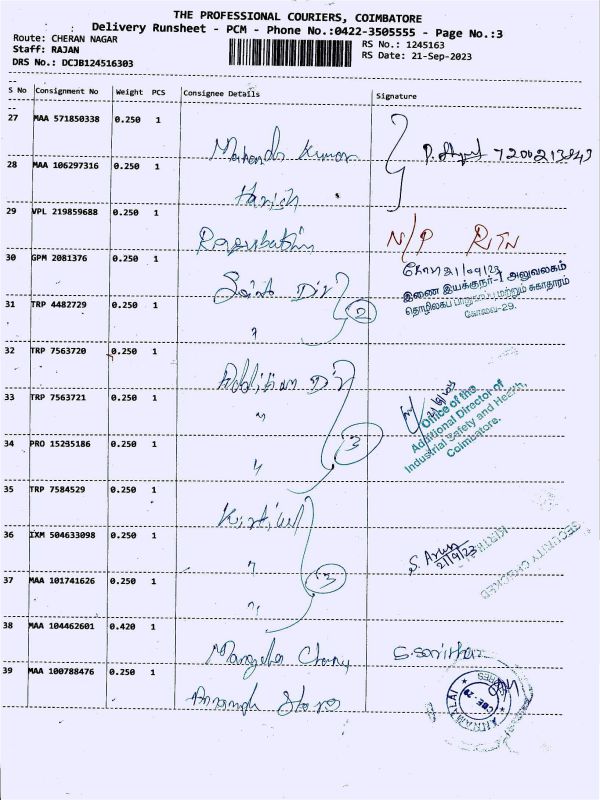 THE PROFESSIONAL COURIERS, COIMBATORE
Delivery Runsheet - PCM - Phone No.:0422-3505555 - Page No.:3
Route: CHERAN NAGAR RS No.: 1245163
Staff: RAJAN RS Date: 21-Sep-2023
DRS No.: DCJB124516303
S No Consignment No Weight PCS Consignee Details Signature
27 MAA 571850338 0.250 1
Mahendr Kumar 7200213843
28 MAA 106297316 0.250 1
Harish
29 VPL 219859688 0.250 1
N/P RTN
30 GPM 2081376 0.250 1
21/09/23
இணை இயக்குநர்-1 அலுவலகம்
தொழிலகப் பாதுகாப்பு மற்றும் சுகாதாரம்
கோவை-29.
Joint Dir
2
31 TRP 4482729 0.250 1
32 TRP 7563720 0.250 1
Additional Dir
33 TRP 7563721 0.250 1
Office of the
Additional Director of
Industrial Safety and Health,
Coimbatore.
3
34 PRO 15235186 0.250 1
35 TRP 7584529 0.250 1
36 IXM 504633098 0.250 1
S. Arun
21/9/23
SECURITY CHECKED
3
37 MAA 101741626 0.250 1
38 MAA 104462601 0.420 1
39 MAA 100788476 0.250 1
Stores
ANNAMALAI